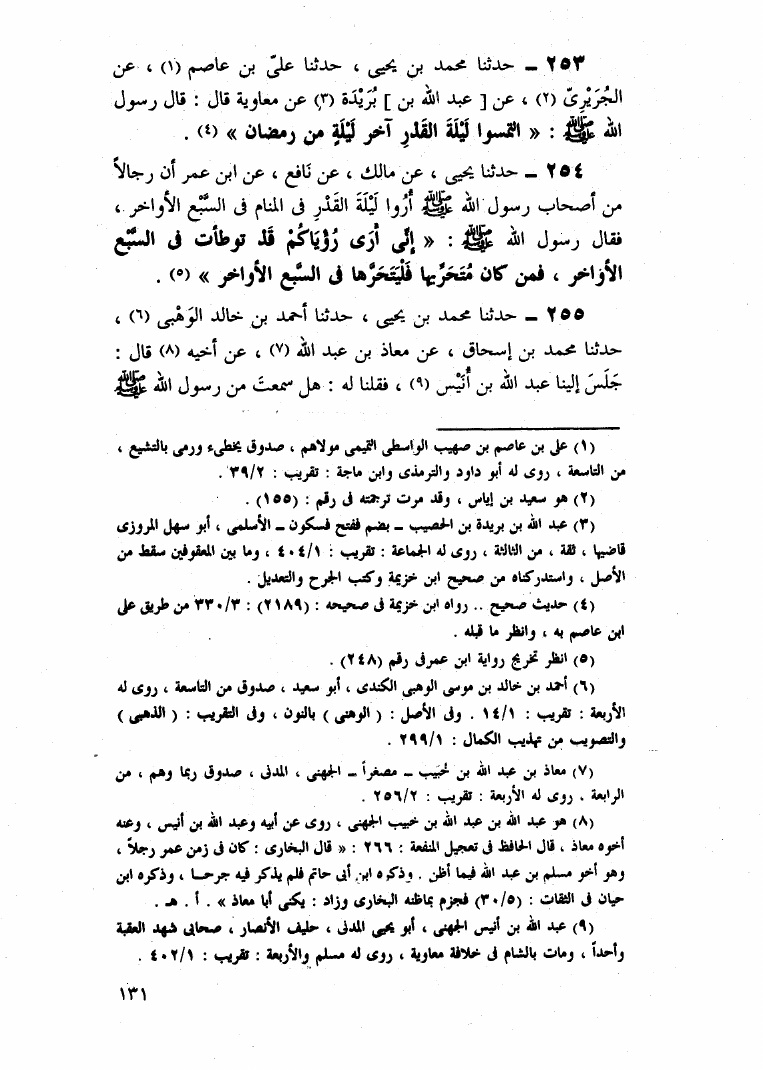 ٢٥٣ ــ حدثنا محمد بن يحيى ، حدثنا علىّ بن عاصم (١) ، عن
الجُرَيْرِىّ (٢) ، عن [ عبد الله بن ] بُرَيْدَة (٣) عن معاوية قال : قال رسول
الله ﷺ : « التمسوا لَيْلَةَ القَدْرِ آخر لَيْلَةٍ من رمضان » (٤) .
٢٥٤ ــ حدثنا يحيى ، عن مالك ، عن نَافع ، عن ابن عمر أن رجالاً
من أصحاب رسول الله ﷺ أُرُوا لَيْلَةَ القَدْرِ فى المنام فى السَّبْع الأواخر ،
فقال رسول الله ﷺ : « إنِّى أرَى رُؤْيَاكُمْ قَدْ توطأت فى السَّبْع
الأوَاخر ، فمن كان مُتَحَرِّيها فَلْيَتَحَرَّها فى السَّبع الأواخر » (٥) .
٢٥٥ ــ حدثنا محمد بن يحيى ، حدثنا أحمد بن خالد الوَهْبى (٦) ،
حدثنا محمد بن إسحاق ، عن معاذ بن عبد الله (٧) ، عن أخيه (٨) قال :
جَلَسَ إلينا عبد الله بن أُنَيْس (٩) ، فقلنا له : هل سمعتَ من رسول الله ﷺ
(١) على بن عاصم بن صهيب الواسطى التميمى مولاهم ، صدوق يخطىء ورمى بالتشيع ،
من التاسعة ، روى له أبو داود والترمذى وابن ماجة : تقريب : ٣٩/٢ .
(٢) هو سعيد بن إياس ، وقد مرت ترجمته فى رقم : (١٥٥) .
(٣) عبد الله بن بريدة بن الحصيب ــ بضم ففتح فسكون ــ الأسلمى ، أبو سهل المروزى
قاضيها ، ثقة ، من الثالثة ، روى له الجماعة : تقريب : ٤٠٤/١ ، وما بين المعقوفين سقط من
الأصل ، واستدركناه من صحيح ابن خزيمة وكتب الجرح والتعديل .
(٤) حديث صحيح .. رواه ابن خزيمة فى صحيحه : (٢١٨٩) : ٣٣٠/٣ من طريق على
ابن عاصم به ، وانظر ما قبله .
(٥) انظر تخريج رواية ابن عمر فى رقم (٢٤٨) .
(٦) أحمد بن خالد بن موسى الوهبى الكندى ، أبو سعيد ، صدوق من التاسعة ، روى له
الأربعة : تقريب : ١٤/١ . وفى الأصل : ( الوهنى ) بالنون ، وفى التقريب : ( الذهبى )
والتصويب من تهذيب الكمال : ٢٩٩/١ .
(٧) معاذ بن عبد الله بن خُبَيب ــ مصغراً ــ الجهنى ، المدنى ، صدوق ربما وهم ، من
الرابعة ، روى له الأربعة : تقريب : ٢٥٦/٢ .
(٨) هو عبد الله بن عبد الله بن خبيب الجهنى ، روى عن أبيه وعبد الله بن أنيس ، وعنه
أخوه معاذ ، قال الحافظ فى تعجيل المنفعة : ٢٦٦ : « قال البخارى : كان فى زمن عمر رجلاً ،
وهو أخو مسلم بن عبد الله فيما أظن . وذكره ابن أبى حاتم فلم يذكر فيه جرحا ، وذكره ابن
حبان فى الثقات : (٣٠/٥) فجزم بماظنه البخارى وزاد : يكنى أبا معاذ » . أ . هـ .
(٩) عبد الله بن أنيس الجهنى ، أبو يحيى المدنى ، حليف الأنصار ، صحابى شهد العقبة
وأحداً ، ومات بالشام فى خلافة معاوية ، روى له مسلم والأربعة : تقريب : ٤٠٢/١ .
١٣١